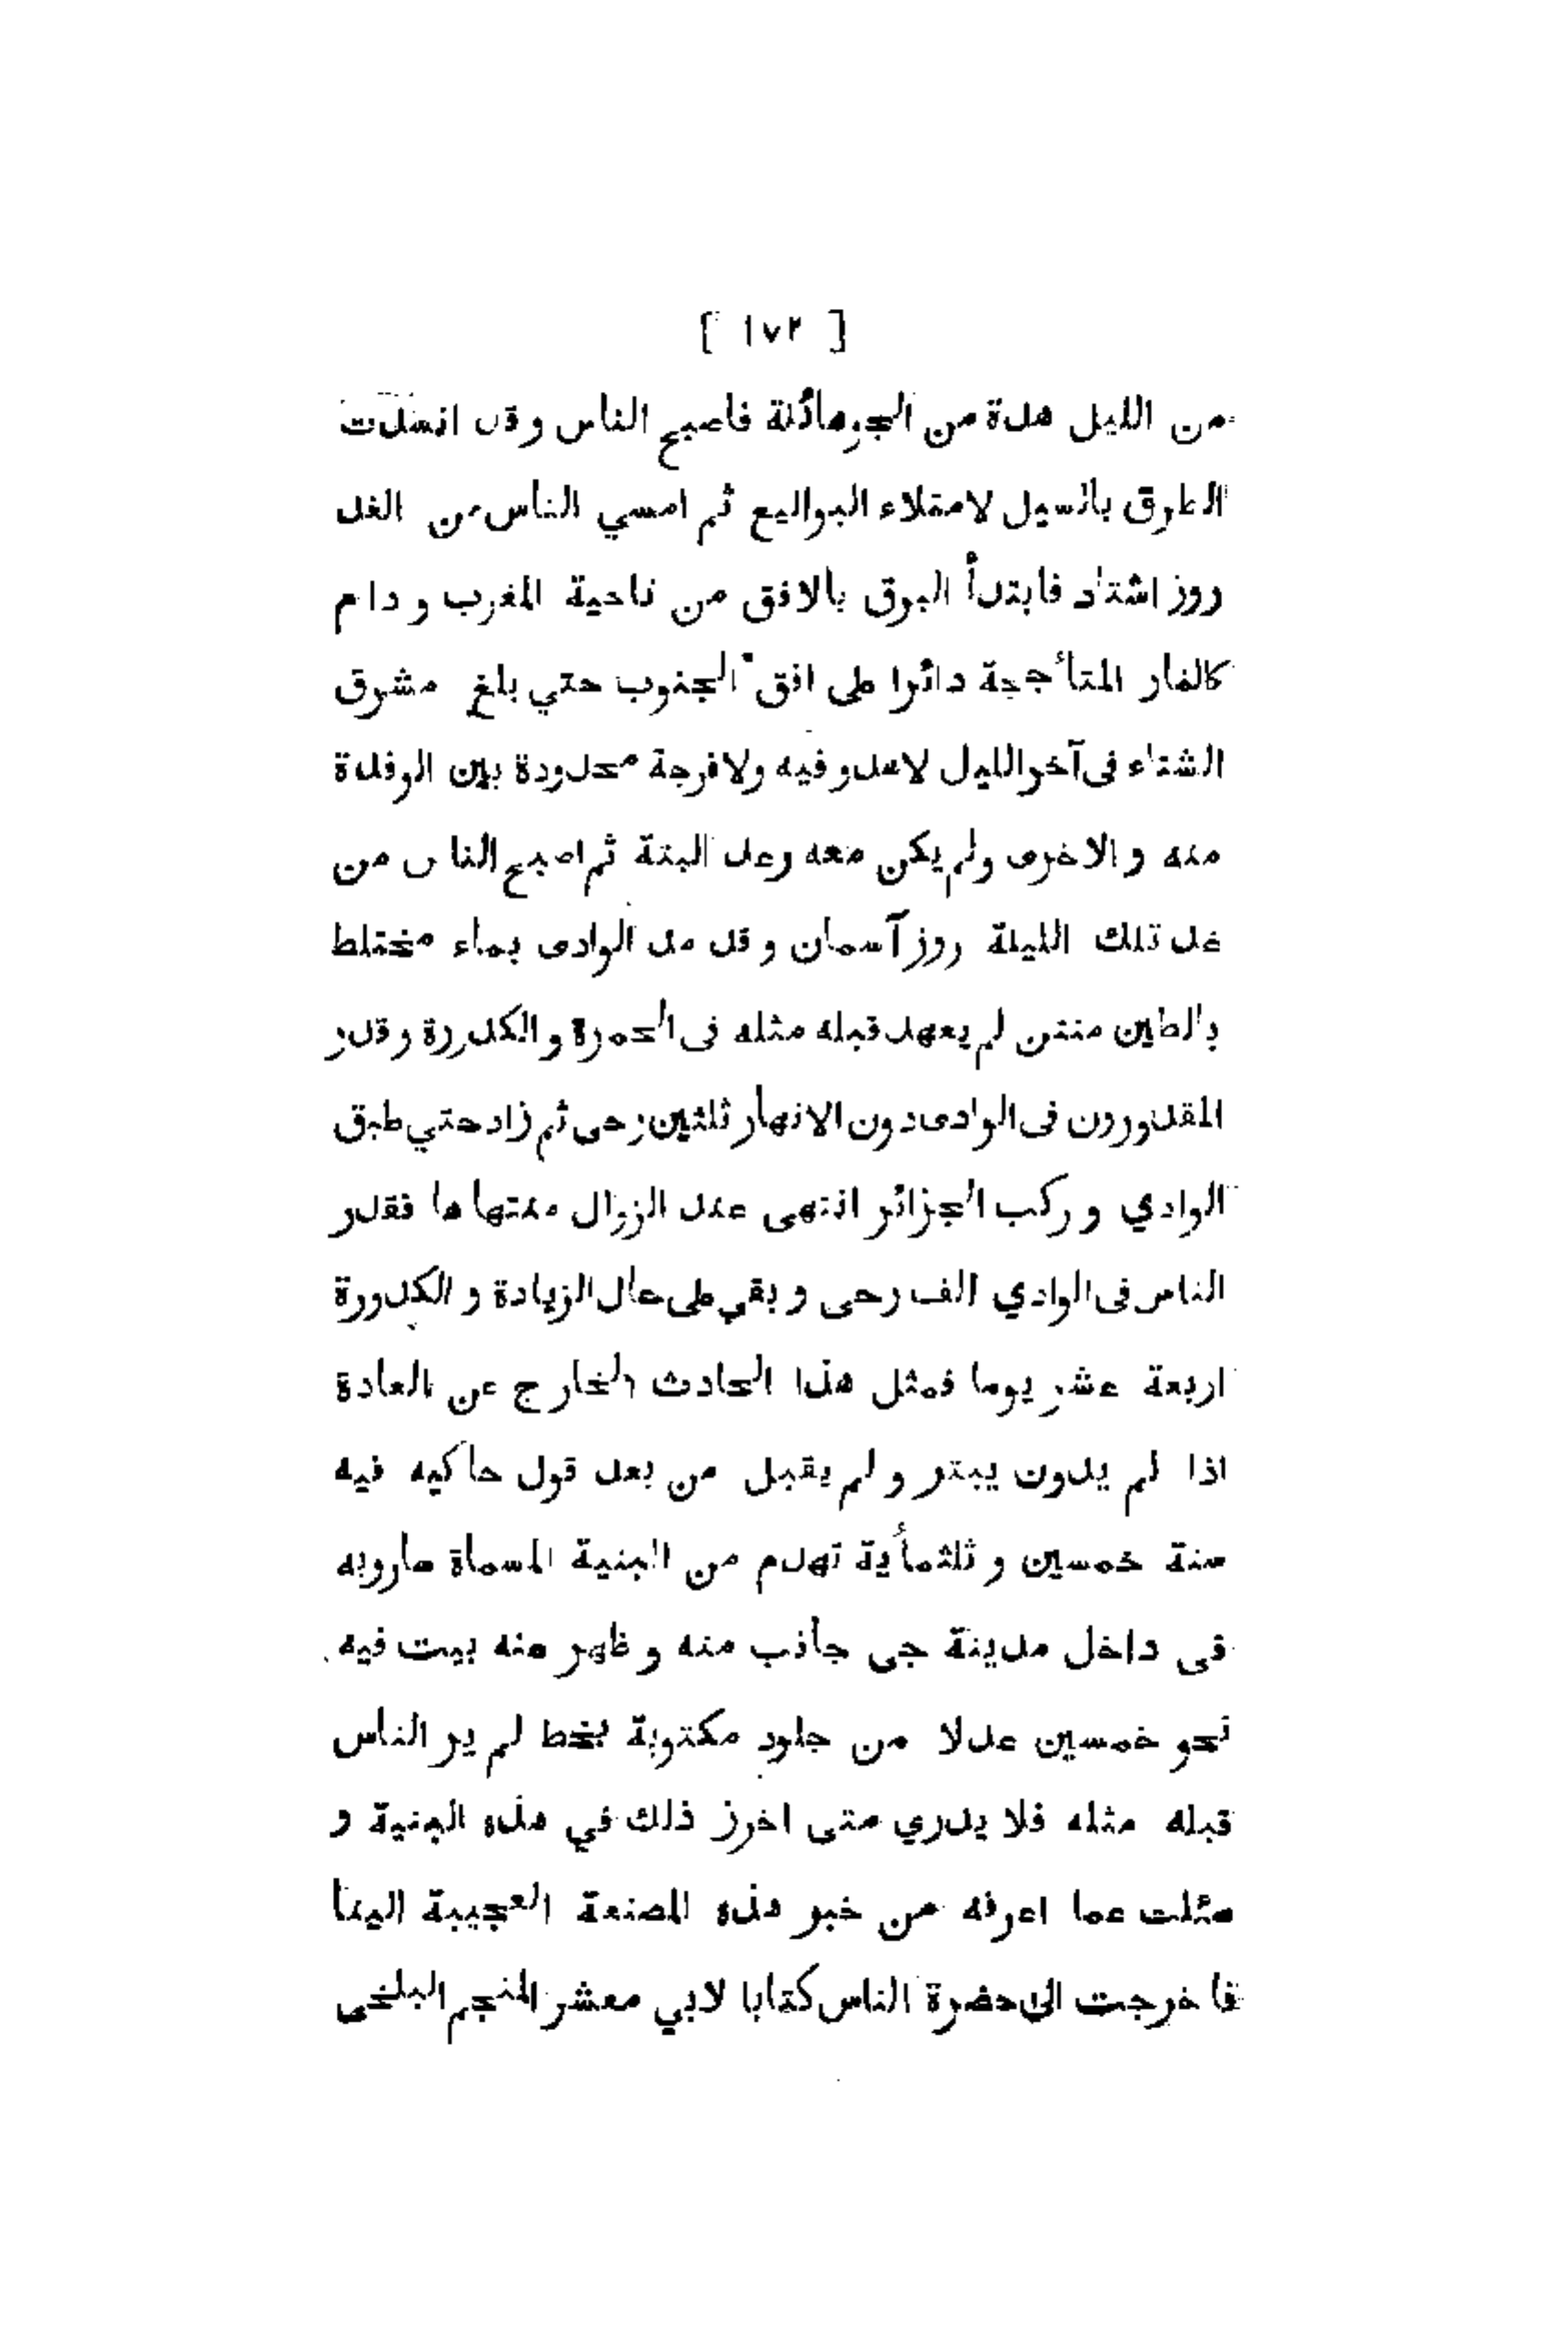 [ ١٧٢ ]
من الليل هدة من الجو هائلة فاصبح الناس وقد انسدت
الطرق بالسيل لامتلاء البواليع ثم امسي الناس من الغد
روز اشتاد فابتدأ البرق بالافق من ناحية المغرب ودام
كالنار المتأججة دائرا على افق الجنوب حتي بلغ مشرق
الشتاء فى آخر الليل لاهدو فيه ولا فرجة محدودة بين الوقدة
منه والاخرى ولم يكن معه رعد البتة ثم اصبح الناس من
غد تلك الليلة روز آسمان وقد مد الوادى بماء مختلط
بالطين منتن لم يعهد قبله مثله فى الحمرة والكدورة وقدر
المقدورون فى الوادى دون الانهار ثلثين رحى ثم زاد حتي طبق
الوادي وركب الجزائر انتهى عند الزوال منتهاها فقدر
الناس فى الوادي الف رحى وبقي على حال الزيادة والكدورة
اربعة عشر يوما فمثل هذا الحادث الخارج عن العادة
اذا لم يدون يبتر ولم يقبل من بعد قول حاكيه فيه
سنة خمسين وثلثمأية تهدم من البنية المسماة سارويه
فى داخل مدينة جى جانب منه وظهر منه بيت فيه
نحو خمسين عدلا من جلود مكتوبة بخط لم ير الناس
قبله مثله فلا يدري متى احرز ذلك في هذه البنية و
سئلت عما اعرفه من خبر هذه المصنعة العجيبة البنا
فاخرجت الى حضرة الناس كتابا لابي معشر المنجم البلخى